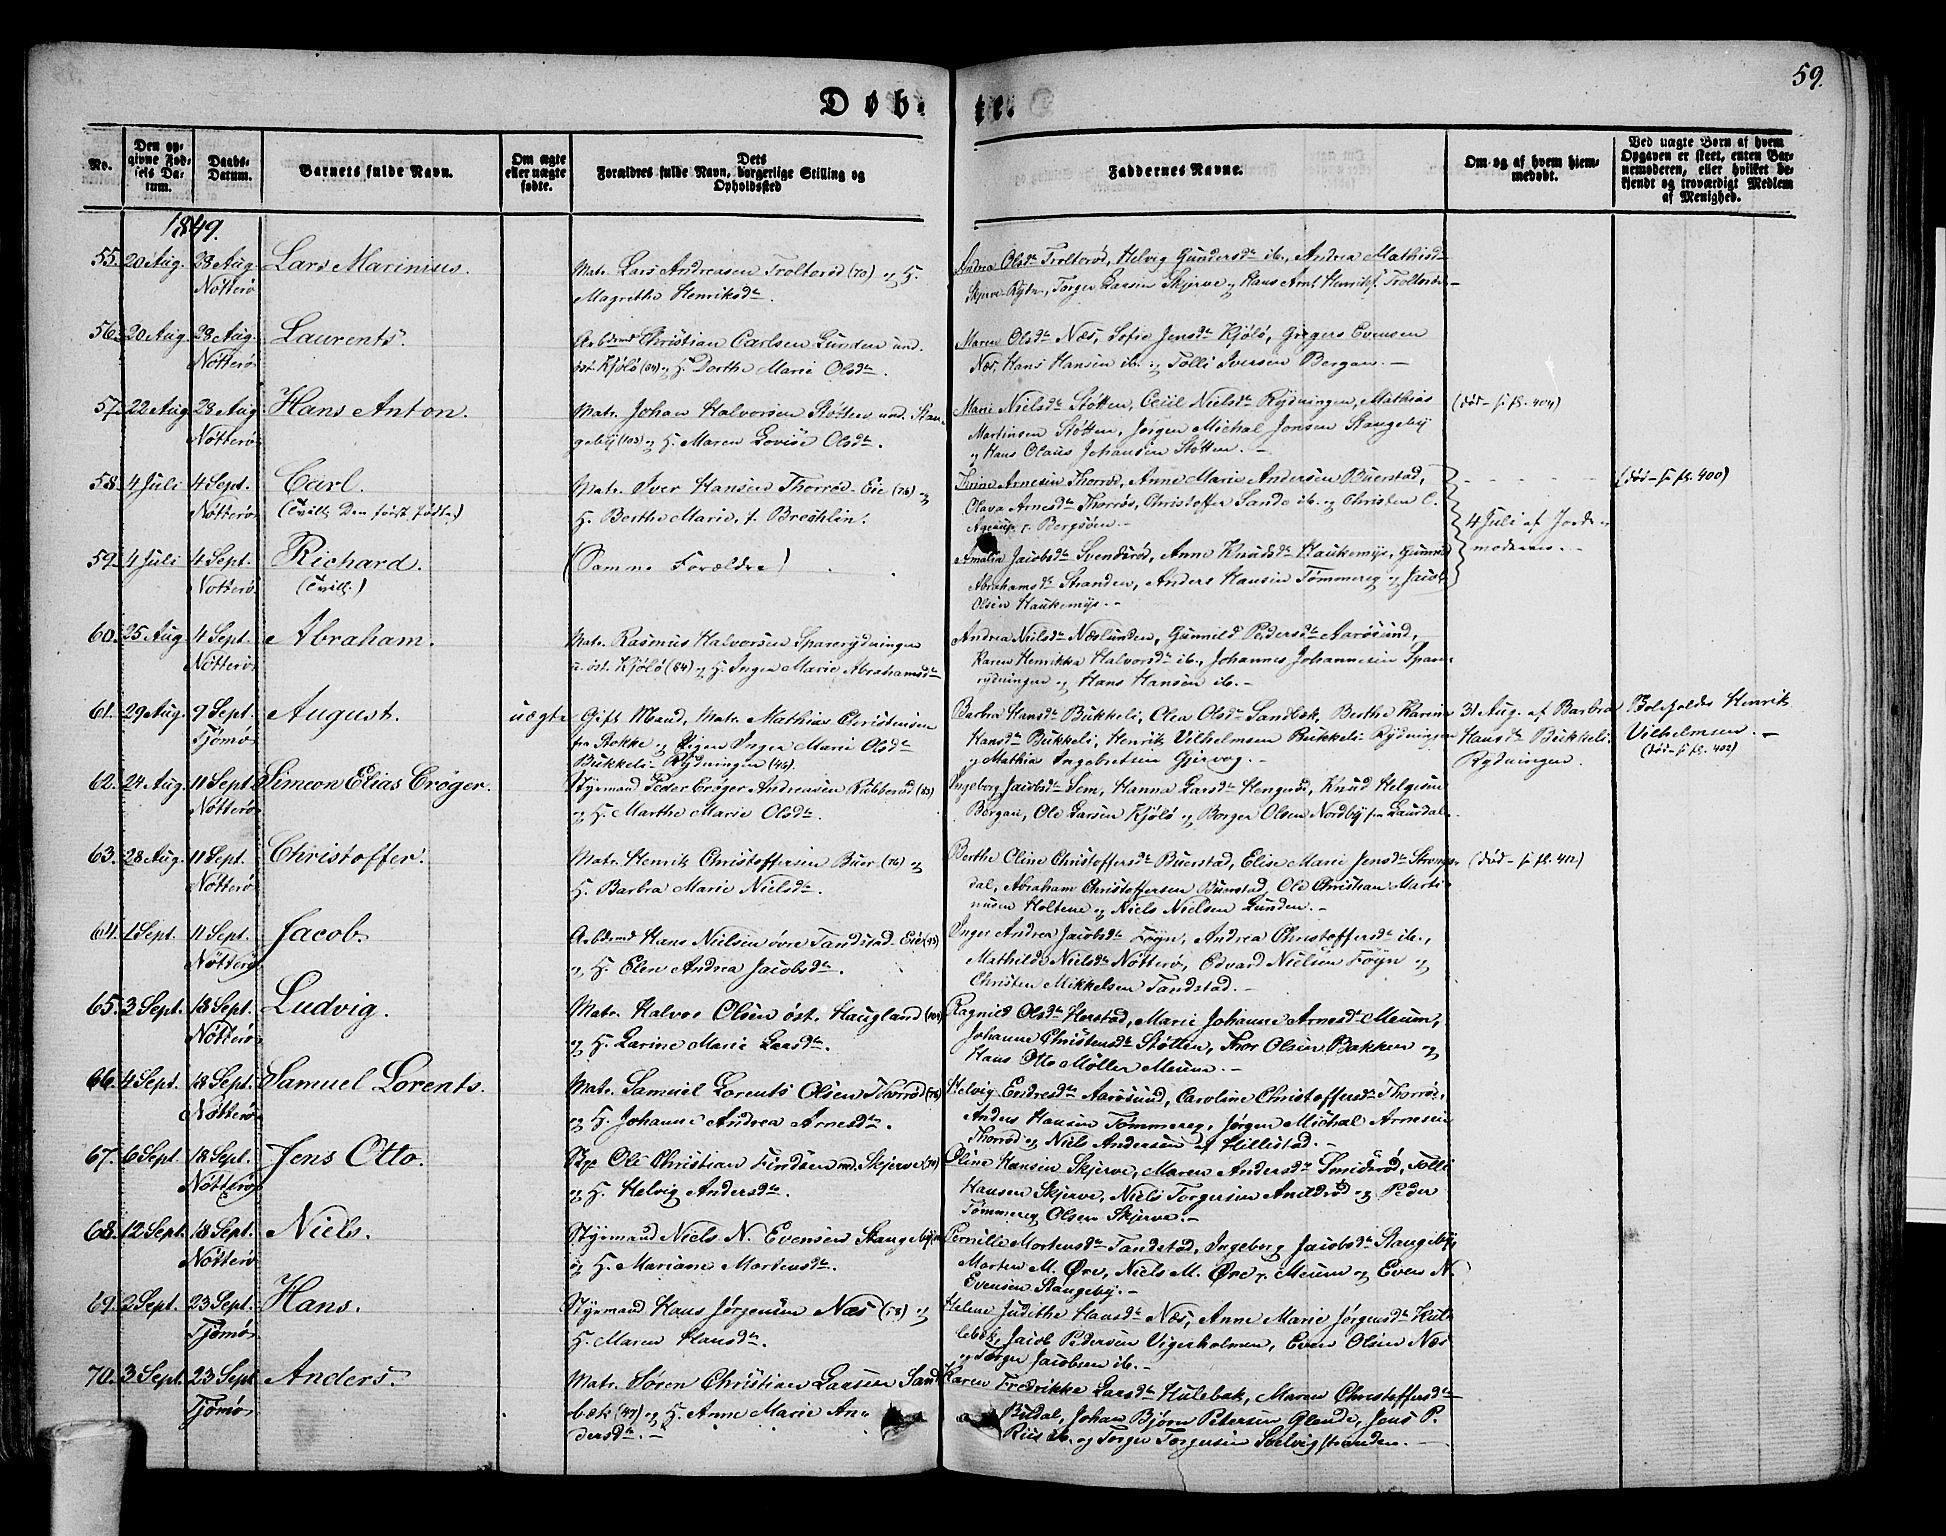 59.
Døb- te.
No.
Den opgivne Fødsels Datum.
Daabs-Datum.
Barnets fulde Navn.
Om ægte eller uægte fødte.
Dets Forældres fulde Navn, borgerlige Stilling og Opholdssted
Faddernes Navne.
Om og af hvem hjemmedøbt.
Ved uægte Børn af hvem Opgaven er skeet, enten Barnemoderen, eller hvilket bekjendt og troværdigt Medlem af Menighed.
1849.
55. 20 Aug. 28 Aug. Nötterö Lars Marinius.
Matr. Lars Andreasen Trolterød (70) og H.
Magrethe Henriksd.
Andrea Olsd. Trolterød, Helvig Gundersd. ib., Andrea Mathisd.
Skjerve-Rydn., Torger Larsen Skjerve og Hans Arnt Henriks. Trolterød.
56. 20 Aug. 28 Aug. Nötterö Laurents.
Arbdsmd Christian Carlsen Lunden und.
öst. Kjölö (84) og H. Dorthe Marie Olsd.
Maren Olsd. Næs, Sofie Jensd. Kjölö, Gregers Evensen
Næs, Hans Hansen ib. og Tolli Iversen Bergan.
57. 22 Aug. 28 Aug. Nötterö Hans Anton.
Matr. Johan Halvorsen Støtten und. Stan-
geby (103) og H. Maren Lovise Olsd.
Marie Nielsd. Støtten, Cecil Nielsd. Rydningen, Mathias
Martinsen Støtten, Jørgen Michal Jonsen Stangeby
og Hans Olaus Johansen Støtten.
(død - 404)
58. 4 Juli 4 Sept. Nötterö Carl.
(Tvill. Den først fødte.)
Matr. Iver Hansen Thorrød-Eie (76) og
H. Berthe Marie, f. Brechlin.
Trine Arnesen Thorrød, Anne Marie Andersen Buerstad,
Olava Arnesd. Thorrøs, Christoffer Sande ib. og Christen C.
Agerup Bergsøen.
4 Juli af Jorde-
moderen.
(død - 400)
59. 4 Juli 4 Sept. Nötterö Richard.
(Tvill.)
(Samme Forældre)
Amalia Jacobsd. Svendsrød, Anne Knudsd. Haukemyr, Gunnil
Abrahamsd. Stranden, Anders Hansen Tømmereg og Jacob
Olsen Haukemyr.
60. 25 Aug. 4 Sept. Nötterö Abraham.
Matr. Rasmus Halvorsen Sparerydningen
u. öst. Kjölö (84) og H. Inger Marie Abrahamsd.
Andrea Nielsd. Næslunden, Gunnild Pedersd. Aarøsund,
Karen Henrikka Halvorsd. ib., Johannes Johannesen Spare-
rydningen og Hans Hansen ib.
61. 29 Aug. 9 Sept. Tjömö August. uægte
Gift Mand, Matr. Mathias Christensen
fra Stokke og Pigen Inger Marie Olsd.
Bukkeli-Rydningen (46).
Barbra Hansd. Bukkeli, Olea Olsd. Sandbek, Berthe Karine
Hansd. Bukkeli, Henrik Vilhelmsen Bukkeli-Rydningen
og Mathia Ingebretsen Gjervog.
31 Aug. af Barbra
Hansd. Bukkeli-
Rydningen.
Henrik
Vilhelmsen.
(død - 402)
62. 24 Aug. 11 Sept. Nötterö Simeon Elias Crøger.
Styrmand Peder Crøger Andreasen Rubberød (83)
og H. Marthe Marie Olsd.
Ingeborg Jacobsd. Sem, Hanna Larsd. Hengsrød, Knud Helgesen
Bergan, Ole Larsen Kjölö og Borger Olsen Nordby fra Laurdal.
63. 28 Aug. 11 Sept. Nötterö Christoffer.
Matr. Henrik Christoffersen Buer (76) og
H. Barbra Marie Nielsd.
Berthe Oline Christoffersd. Buerstad, Elise Marie Jensd. Stromps-
dal, Abraham Christoffersen Buerstad, Ole Christian Marti-
nusen Holtene og Niels Nielsen Lunden.
(død - 412)
64. 1 Sept. 11 Sept. Nötterö Jacob.
Arbdsmd Hans Nielsen øvre Tandstad-Eie (93)
og H. Elen Andrea Jacobsd.
Inger Andrea Jacobsd. Føyn, Andrea Christoffersd. ib.,
Mathilde Nielsd. Nötterö, Edvard Nielsen Føyn og
Christen Mikkelsen Tandstad.
65. 2 Sept. 18 Sept. Nötterö Ludvig.
Matr. Halvor Olsen öst. Haugland (101)
og H. Larine Marie Larsd.
Ragnild Olsd. Herstad, Marie Johanne Arnesd. Meum,
Johanne Christensd. Støtten, Thor Olsen Bakken og
Hans Otto Møller Meum.
66. 4 Sept. 18 Sept. Nötterö Samuel Lorents.
Matr. Samuel Lorents Olsen Thorrød (76)
og H. Johanne Andrea Arnesd.
Helvig Endresd. Aarøsund, Caroline Christoffersd. Thorrød,
Anders Hansen Tømmereg, Jørgen Michal Arnesen
Thorrød og Niels Andersen af Hillestad.
67. 6 Sept. 18 Sept. Nötterö Jens Otto.
Ole Christian Findsen Skjerve (70)
og H. Helvig Andersd.
Oline Hansen Skjerve, Maren Andersd. Smidsrød, Tolli
Hansen Skjerve, Niels Torgersen Arildsrød og Peder
Tømmereg Olsen Skjerve.
68. 12 Sept. 18 Sept. Nötterö Niels.
Styrmand Niels N. Evensen Stangeby
og H. Mariane Mortensd.
Pernille Mortensd. Tandstad, Ingeborg Jacobsd. Stangeby,
Morten M. Øre, Niels M. Øre Meum og Even N.
Evensen Stangeby.
69. 2 Sept. 23 Sept. Tjömö Hans.
Styrmand Hans Jørgensen Næs (58) og
H. Maren Hansd.
Helene Judithe Hansd. Næs, Anne Marie Jørgensd. Hule-
bak, Jacob Pedersen Vigerholmen, Even Olsen Næs
og Torger Jacobsen ib.
70. 3 Sept. 23 Sept. Tjömö Anders.
Matr. Søren Christian Larsen Sand-
bæk (47) og H. Anne Marie An-
dersd.
Karen Fredrikke Larsd. Hulebak, Maren Christoffersd.
Budal, Johan Bjørn Petersen Glende, Jens P.
Riis ib. og Torger Torgersen Solvigstranden.